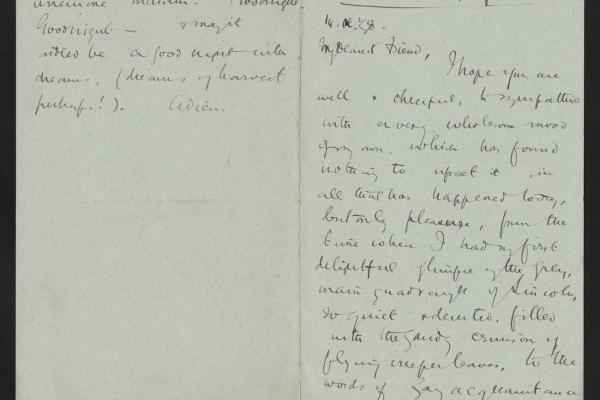 Goodnight — & may it
indeed be a good night with
dreams, (dreams of harvest
perhaps!). Adieu.
My dearest Friend,
I hope you are
well & cheerful, to sympathise
with a very wholesome mood
of my own, which has found
nothing to upset it, in
all that has happened today,
but only pleasure, from the
time when I had my first
delightful glimpse of the Grey,
main quadrangle of Lincoln,
so quiet & deserted, filled
with the gaudy crimson of
flying creeper leaves, to the
words of gay acquaintance